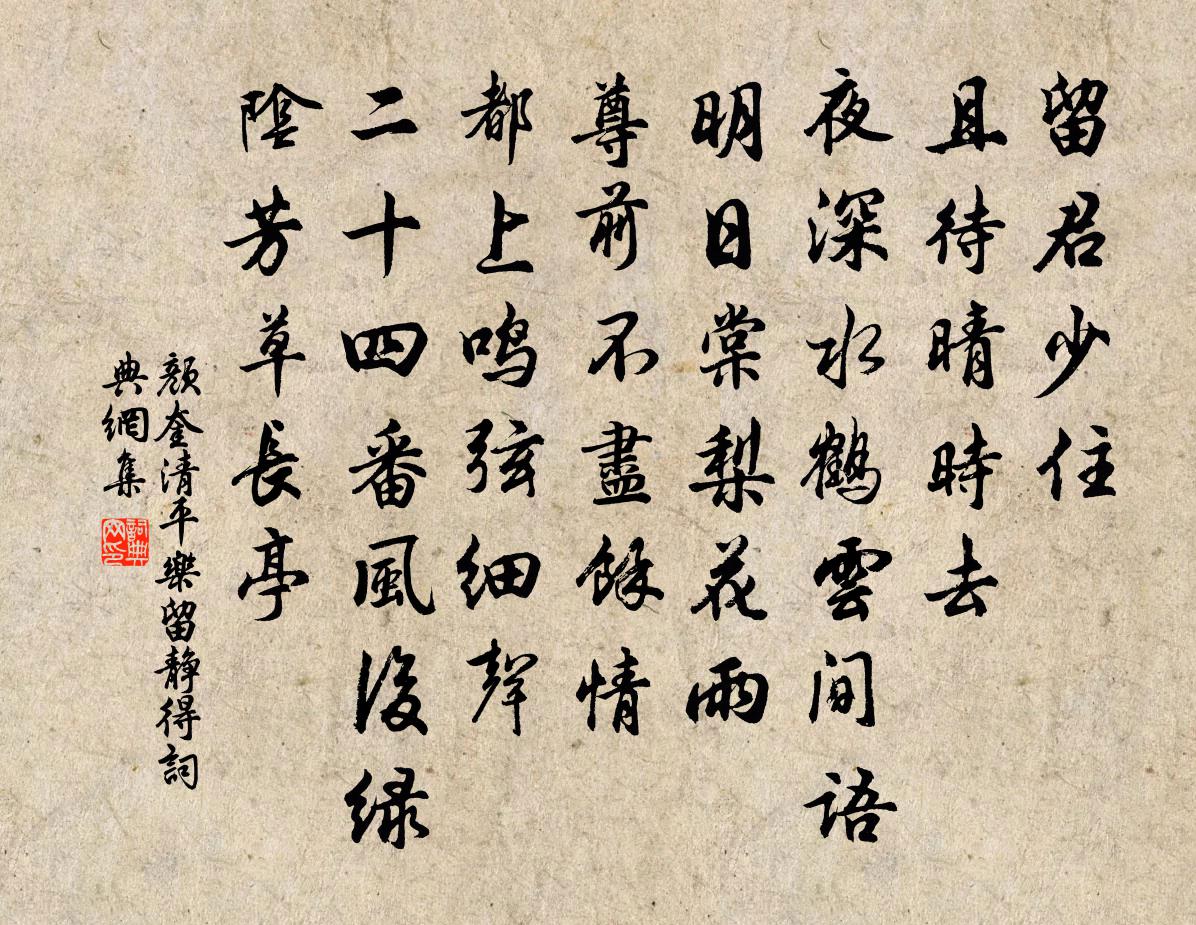 留君少住
且待晴時去
夜深水鶴雲間語
明日棠梨花雨
尊前不盡餘情
都上鳴弦細聲
二十四番風後綠
陰芳草長亭
顏奎清平樂留靜得詞
典網集
詞典
网印